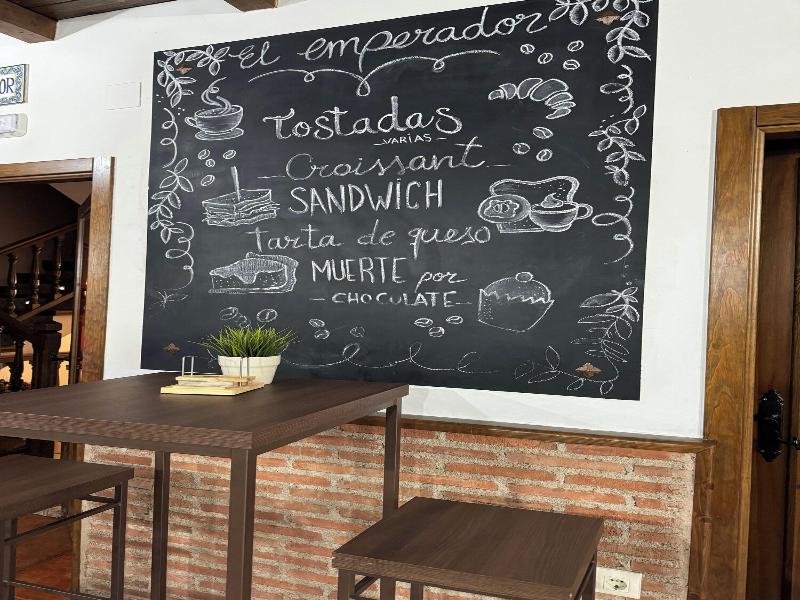 El emperador
OR
Tostadas
VARIAS
Croissant
SANDWiCH
Tarta de queso
MUERTE por
CHOCOLATE